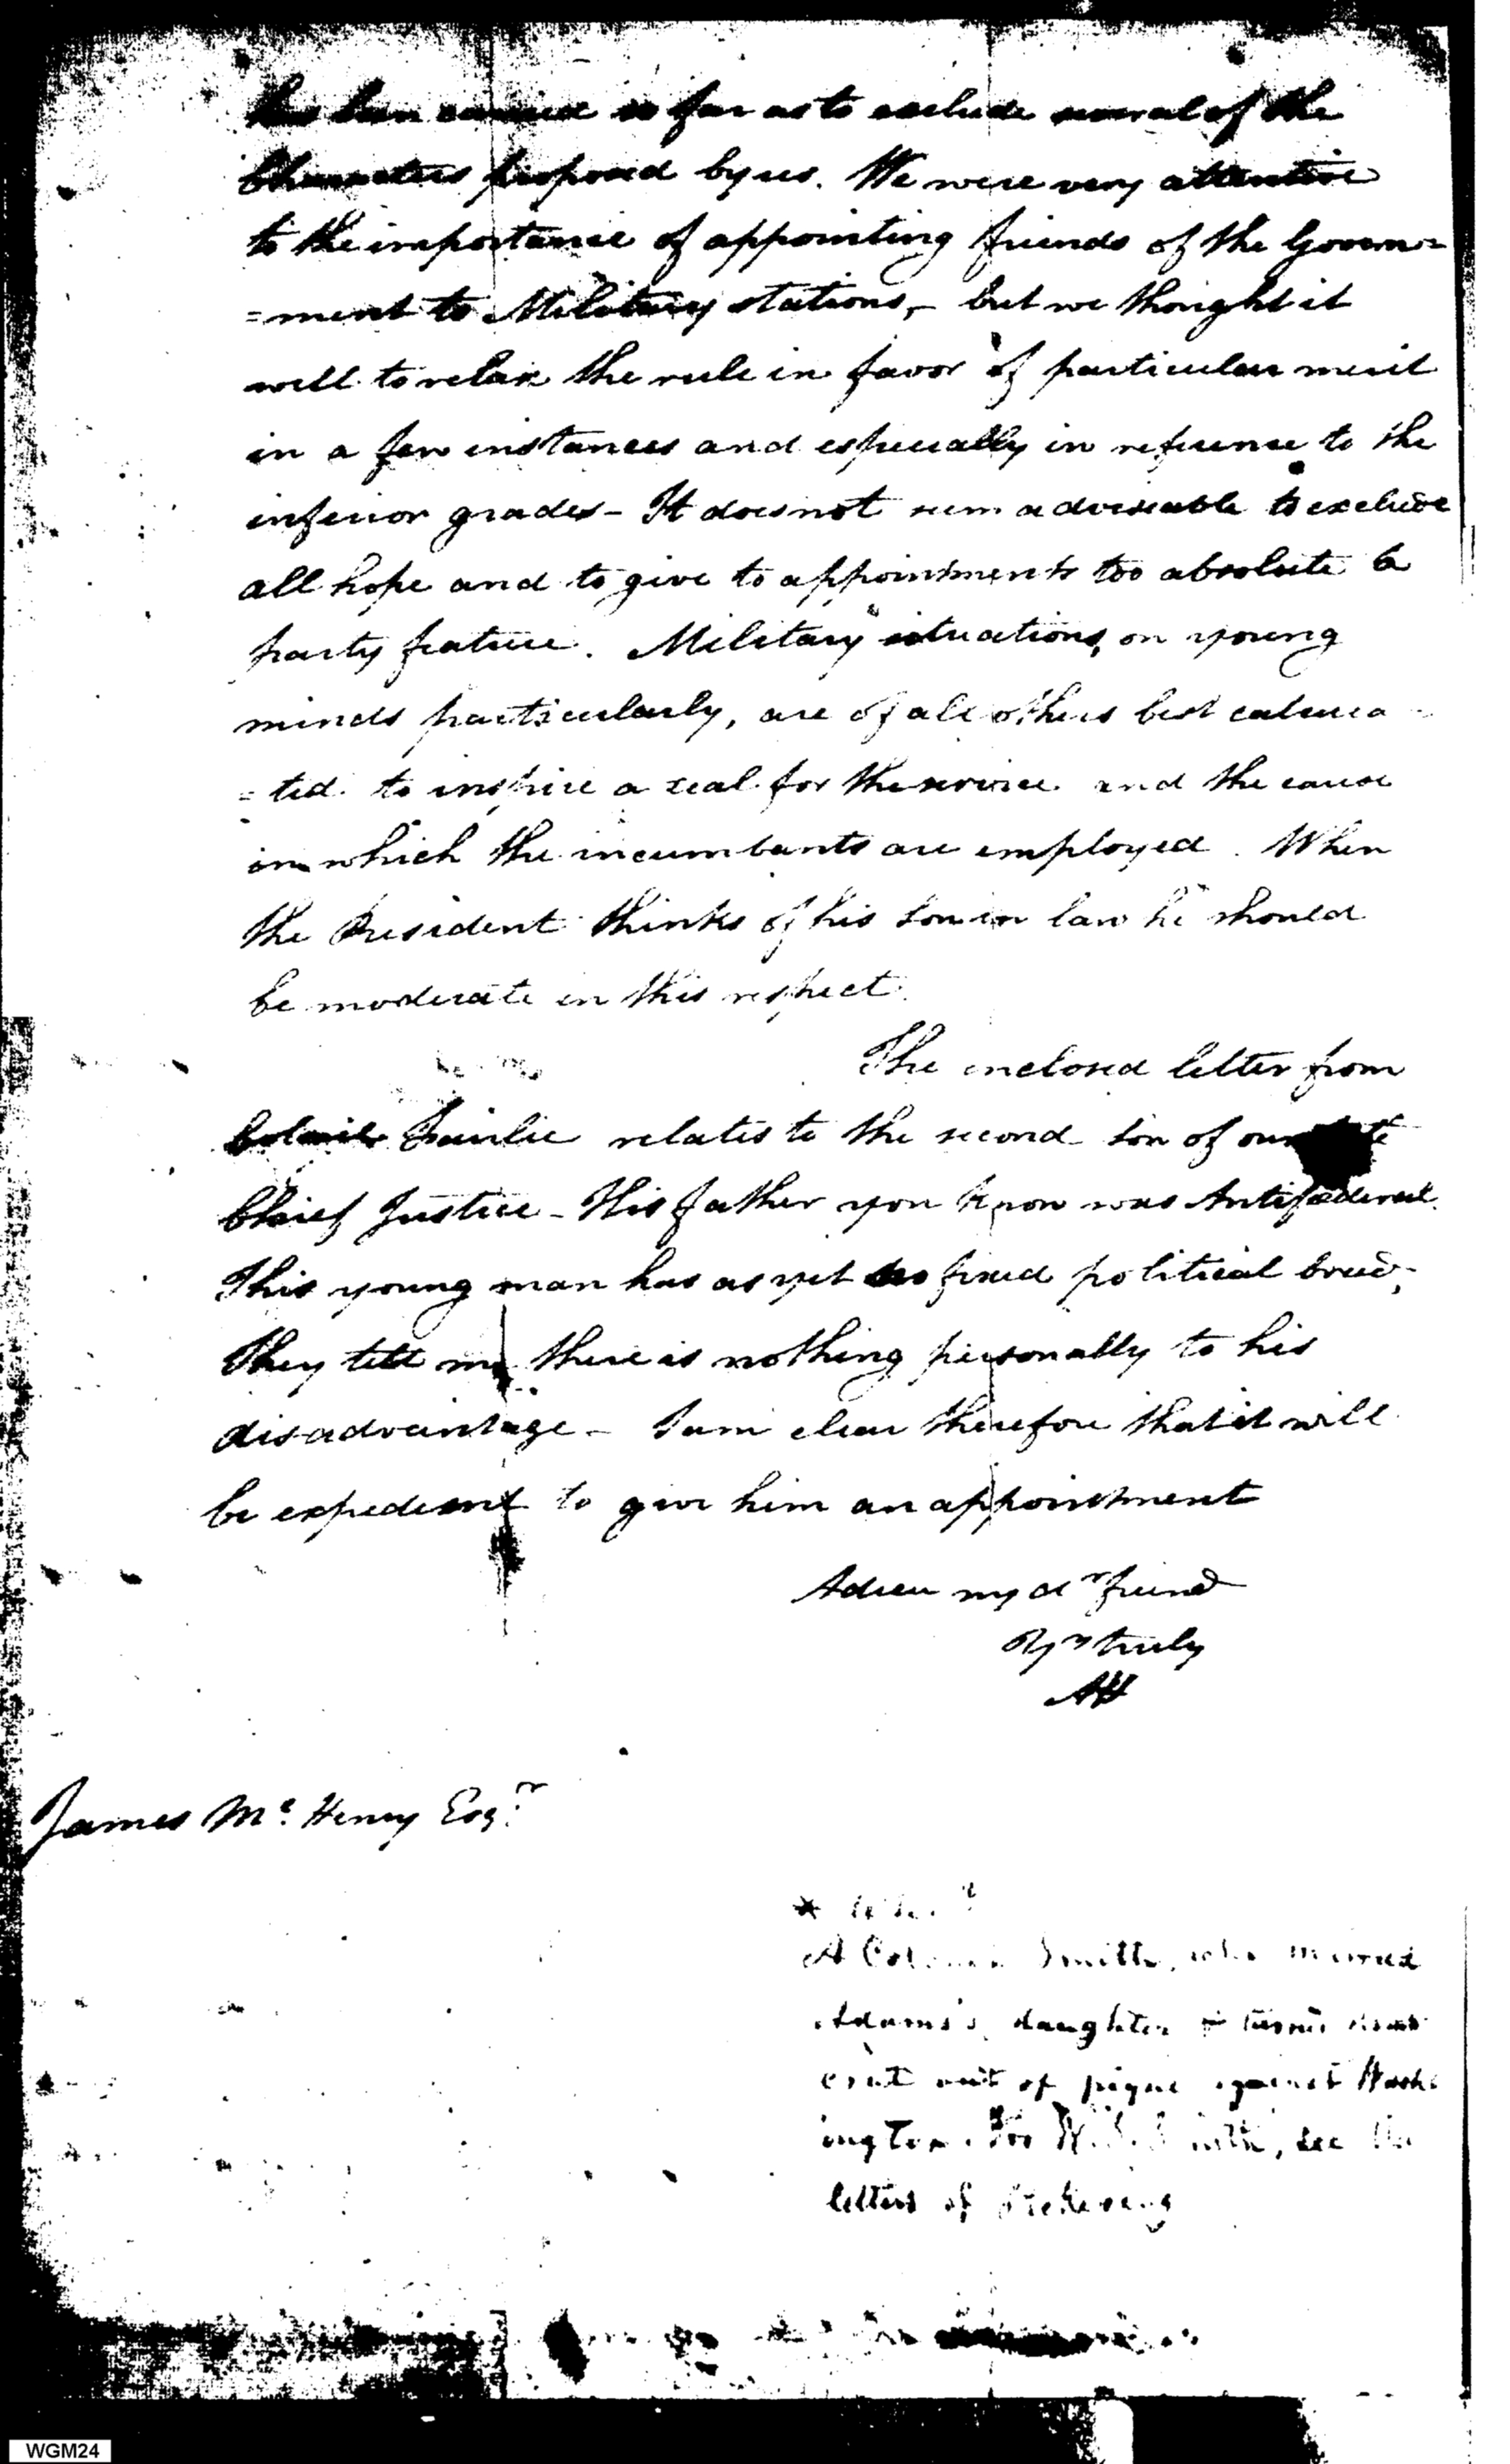 has been carried so far as to exclude several of the
Characters proposed by us. We were very attentive
to the importance of appointing friends of the Govern=
=ment to Military stations, - but we thought it
well to relax the rule in favor of particular merit
in a few instances and especially in reference to the
inferior grades - It does not seem adviseable to exclude
all hope and to give to appointments too absolute a
party feature. Military situations, on young
minds particularly, are of all others best calcula
=ted to inspire a zeal for the service and the cause
in which the incumbants are employed. When
the President thinks of his son in law he should
be moderate in this respect.
The inclosed letter from
Fairlie relates to the second son of our
Chief Justice - His father you know was Antifœderal.
This young man has as yet no fixed political creed;
They tell me there is nothing personally to his
disadvantage - I am clear therefore that it will
be expedient to give him an appointment
Adieu my dr friend
Yrs truly
AH
James Mc. Henry Esqr.
*
A Smith, who married
Adams's daughter & turned
crat out of pique against Wash
ington. For W. S. Smith, see the
letters of Pickering
WGM24